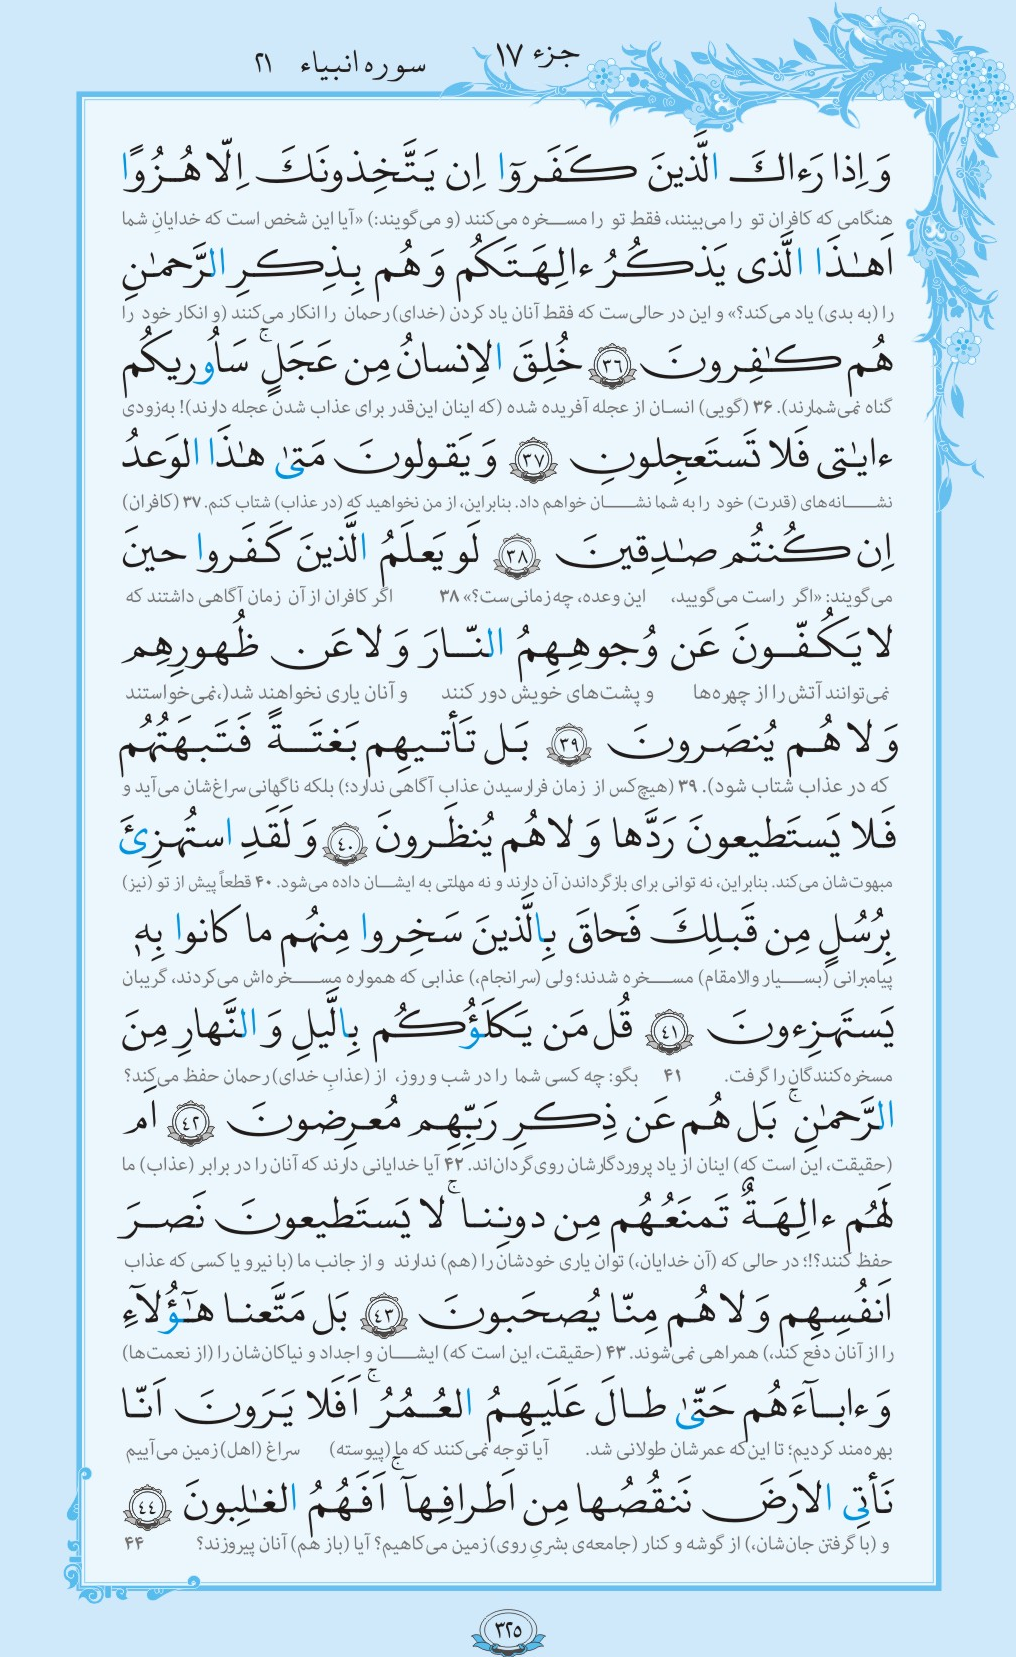 جزء ۱۷
سوره انبیاء ۲۱
وَ اِذا رَءاكَ الَّذينَ كَفَروٓا اِن يَتَّخِذونَكَ اِلّا هُزُوًا
هنگامی که کافران تو را می‌بینند، فقط تو را مسخره می‌کنند (و می‌گویند:) «آیا این شخص است که خدایانِ شما
اَهٰذَا الَّذى يَذكُرُ ءالِهَتَكُم وَ هُم بِذِكرِ الرَّحمٰنِ
را (به بدی) یاد می‌کند؟» و این در حالی‌ست که فقط آنان یاد کردن (خدای) رحمان را انکار می‌کنند (و انکار خود را
هُم كٰفِرونَ ﴿٣٦﴾ خُلِقَ الاِنسانُ مِن عَجَلٍ ۚ سَاُوريكُم
گناه نمی‌شمارند). ۳۶ (گویی) انسان از عجله آفریده شده (که اینان این‌قدر برای عذاب شدن عجله دارند)! به‌زودی
ءايٰتى فَلا تَستَعجِلونِ ﴿٣٧﴾ وَ يَقولونَ مَتىٰ هٰذَا الوَعدُ
نشانه‌های (قدرت) خود را به شما نشان خواهم داد. بنابراین، از من نخواهید که (در عذاب) شتاب کنم. ۳۷ (کافران)
اِن كُنتُم صٰدِقينَ ﴿٣٨﴾ لَو يَعلَمُ الَّذينَ كَفَروا حينَ
می‌گویند: «اگر راست می‌گویید، این وعده، چه زمانی‌ست؟» ۳۸ اگر کافران از آن زمان آگاهی داشتند که
لا يَكُفّونَ عَن وُجوهِهِمُ النّارَ وَ لا عَن ظُهورِهِم
نمی‌توانند آتش را از چهره‌ها و پشت‌های خویش دور کنند و آنان یاری نخواهند شد(،نمی‌خواستند
وَ لا هُم يُنصَرونَ ﴿٣٩﴾ بَل تَأتيهِم بَغتَةً فَتَبهَتُهُم
که در عذاب شتاب شود). ۳۹ (هیچ‌کس از زمان فرارسیدن عذاب آگاهی ندارد؛) بلکه ناگهانی سراغ‌شان می‌آید و
فَلا يَستَطيعونَ رَدَّها وَ لا هُم يُنظَرونَ ﴿٤٠﴾ وَ لَقَدِ استُهزِئَ
مبهوت‌شان می‌کند. بنابراین، نه توانی برای بازگرداندن آن دارند و نه مهلتی به ایشان داده می‌شود. ۴۰ قطعاً پیش از تو (نیز)
بِرُسُلٍ مِن قَبلِكَ فَحاقَ بِالَّذينَ سَخِروا مِنهُم ما كانوا بِهٖ
پیامبرانی (بسیار والامقام) مسخره شدند؛ ولی (سرانجام،) عذابی که همواره مسخره‌اش می‌کردند، گریبان
يَستَهزِءونَ ﴿٤١﴾ قُل مَن يَكلَؤُكُم بِالَّيلِ وَ النَّهارِ مِنَ
مسخره‌کنندگان را گرفت. ۴۱ بگو: چه کسی شما را در شب و روز، از (عذابِ خدای) رحمان حفظ می‌کند؟
الرَّحمٰنِ ۚ بَل هُم عَن ذِكرِ رَبِّهِم مُعرِضونَ ﴿٤٢﴾ اَم
(حقیقت، این است که) اینان از یاد پروردگارشان روی‌گردان‌اند. ۴۲ آیا خدایانی دارند که آنان را در برابر (عذاب) ما
لَهُم ءالِهَةٌ تَمنَعُهُم مِن دونِنا ۚ لا يَستَطيعونَ نَصرَ
حفظ کنند؟!؛ در حالی که (آن خدایان،) توان یاری خودشان را (هم) ندارند و از جانب ما (با نیرو یا کسی که عذاب
اَنفُسِهِم وَ لا هُم مِنّا يُصحَبونَ ﴿٤٣﴾ بَل مَتَّعنا هٰٓؤُلآءِ
را از آنان دفع کند،) همراهی نمی‌شوند. ۴۳ (حقیقت، این است که) ایشان و اجداد و نیاکان‌شان را (از نعمت‌ها)
وَ ءابآءَهُم حَتّىٰ طالَ عَلَيهِمُ العُمُرُ ۚ اَفَلا يَرَونَ اَنّا
بهره‌مند کردیم؛ تا این‌که عمرشان طولانی شد. آیا توجه نمی‌کنند که ما (پیوسته) سراغ (اهل) زمین می‌آییم
نَأتِى الاَرضَ نَنقُصُها مِن اَطرافِهآ ۚ اَفَهُمُ الغٰلِبونَ ﴿٤٤﴾
و (با گرفتن جان‌شان،) از گوشه و کنار (جامعه‌ی بشریِ روی) زمین می‌کاهیم؟ آیا (باز هم) آنان پیروزند؟ ۴۴
۳۲۵